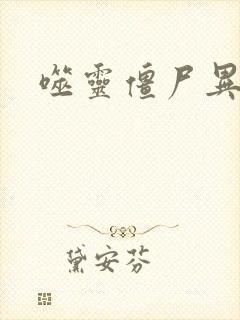 噬靈僵尸異
黛安芬